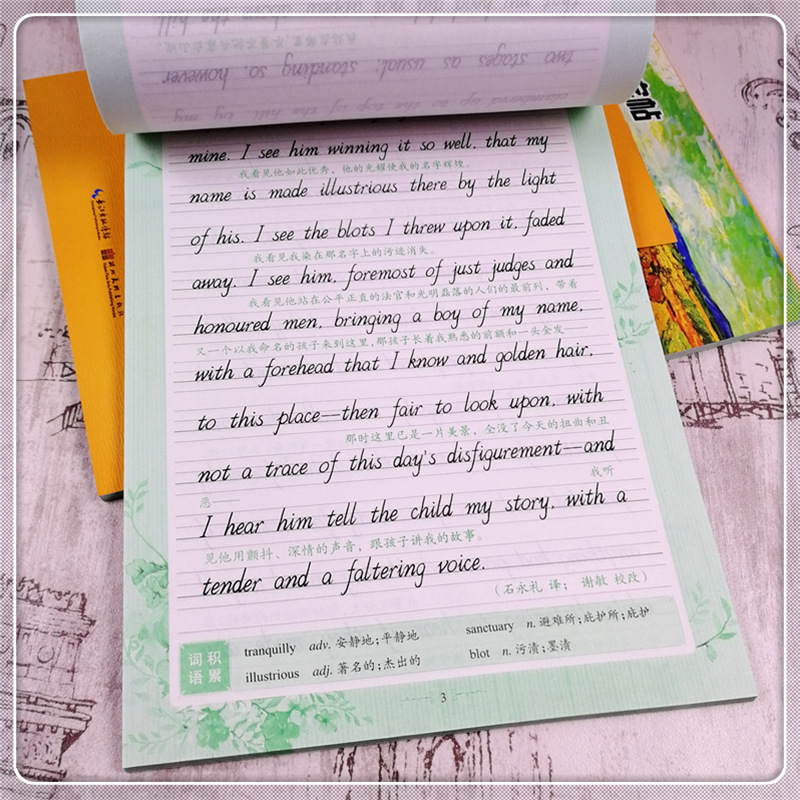 two stages as usual; standing, so, however
mine. I see him winning it so well, that my
我看见他如此优秀，他的光耀使我的名字辉煌。
name is made illustrious there by the light
of his. I see the blots I threw upon it, faded
我看见我染在那名字上的污迹消失。
away. I see him, foremost of just judges and
我看见他站在公平正直的法官和光明磊落的人们的最前列，带着
honoured men, bringing a boy of my name,
又一个以我命名的孩子来到这里，那孩子长着我熟悉的前额和一头金发——
with a forehead that I know and golden hair,
to this place—then fair to look upon, with
那时这里已是一片美景，全没了今天的扭曲和丑
not a trace of this day's disfigurement—and
恶—— 我听
I hear him tell the child my story, with a
见他用颤抖、深情的声音，跟孩子讲我的故事。
tender and a faltering voice.
（石永礼 译； 谢敏 校改）
词语积累
tranquilly adv. 安静地；平静地 sanctuary n. 避难所；庇护所；庇护
illustrious adj. 著名的；杰出的 blot n. 污渍；墨渍
3
帖